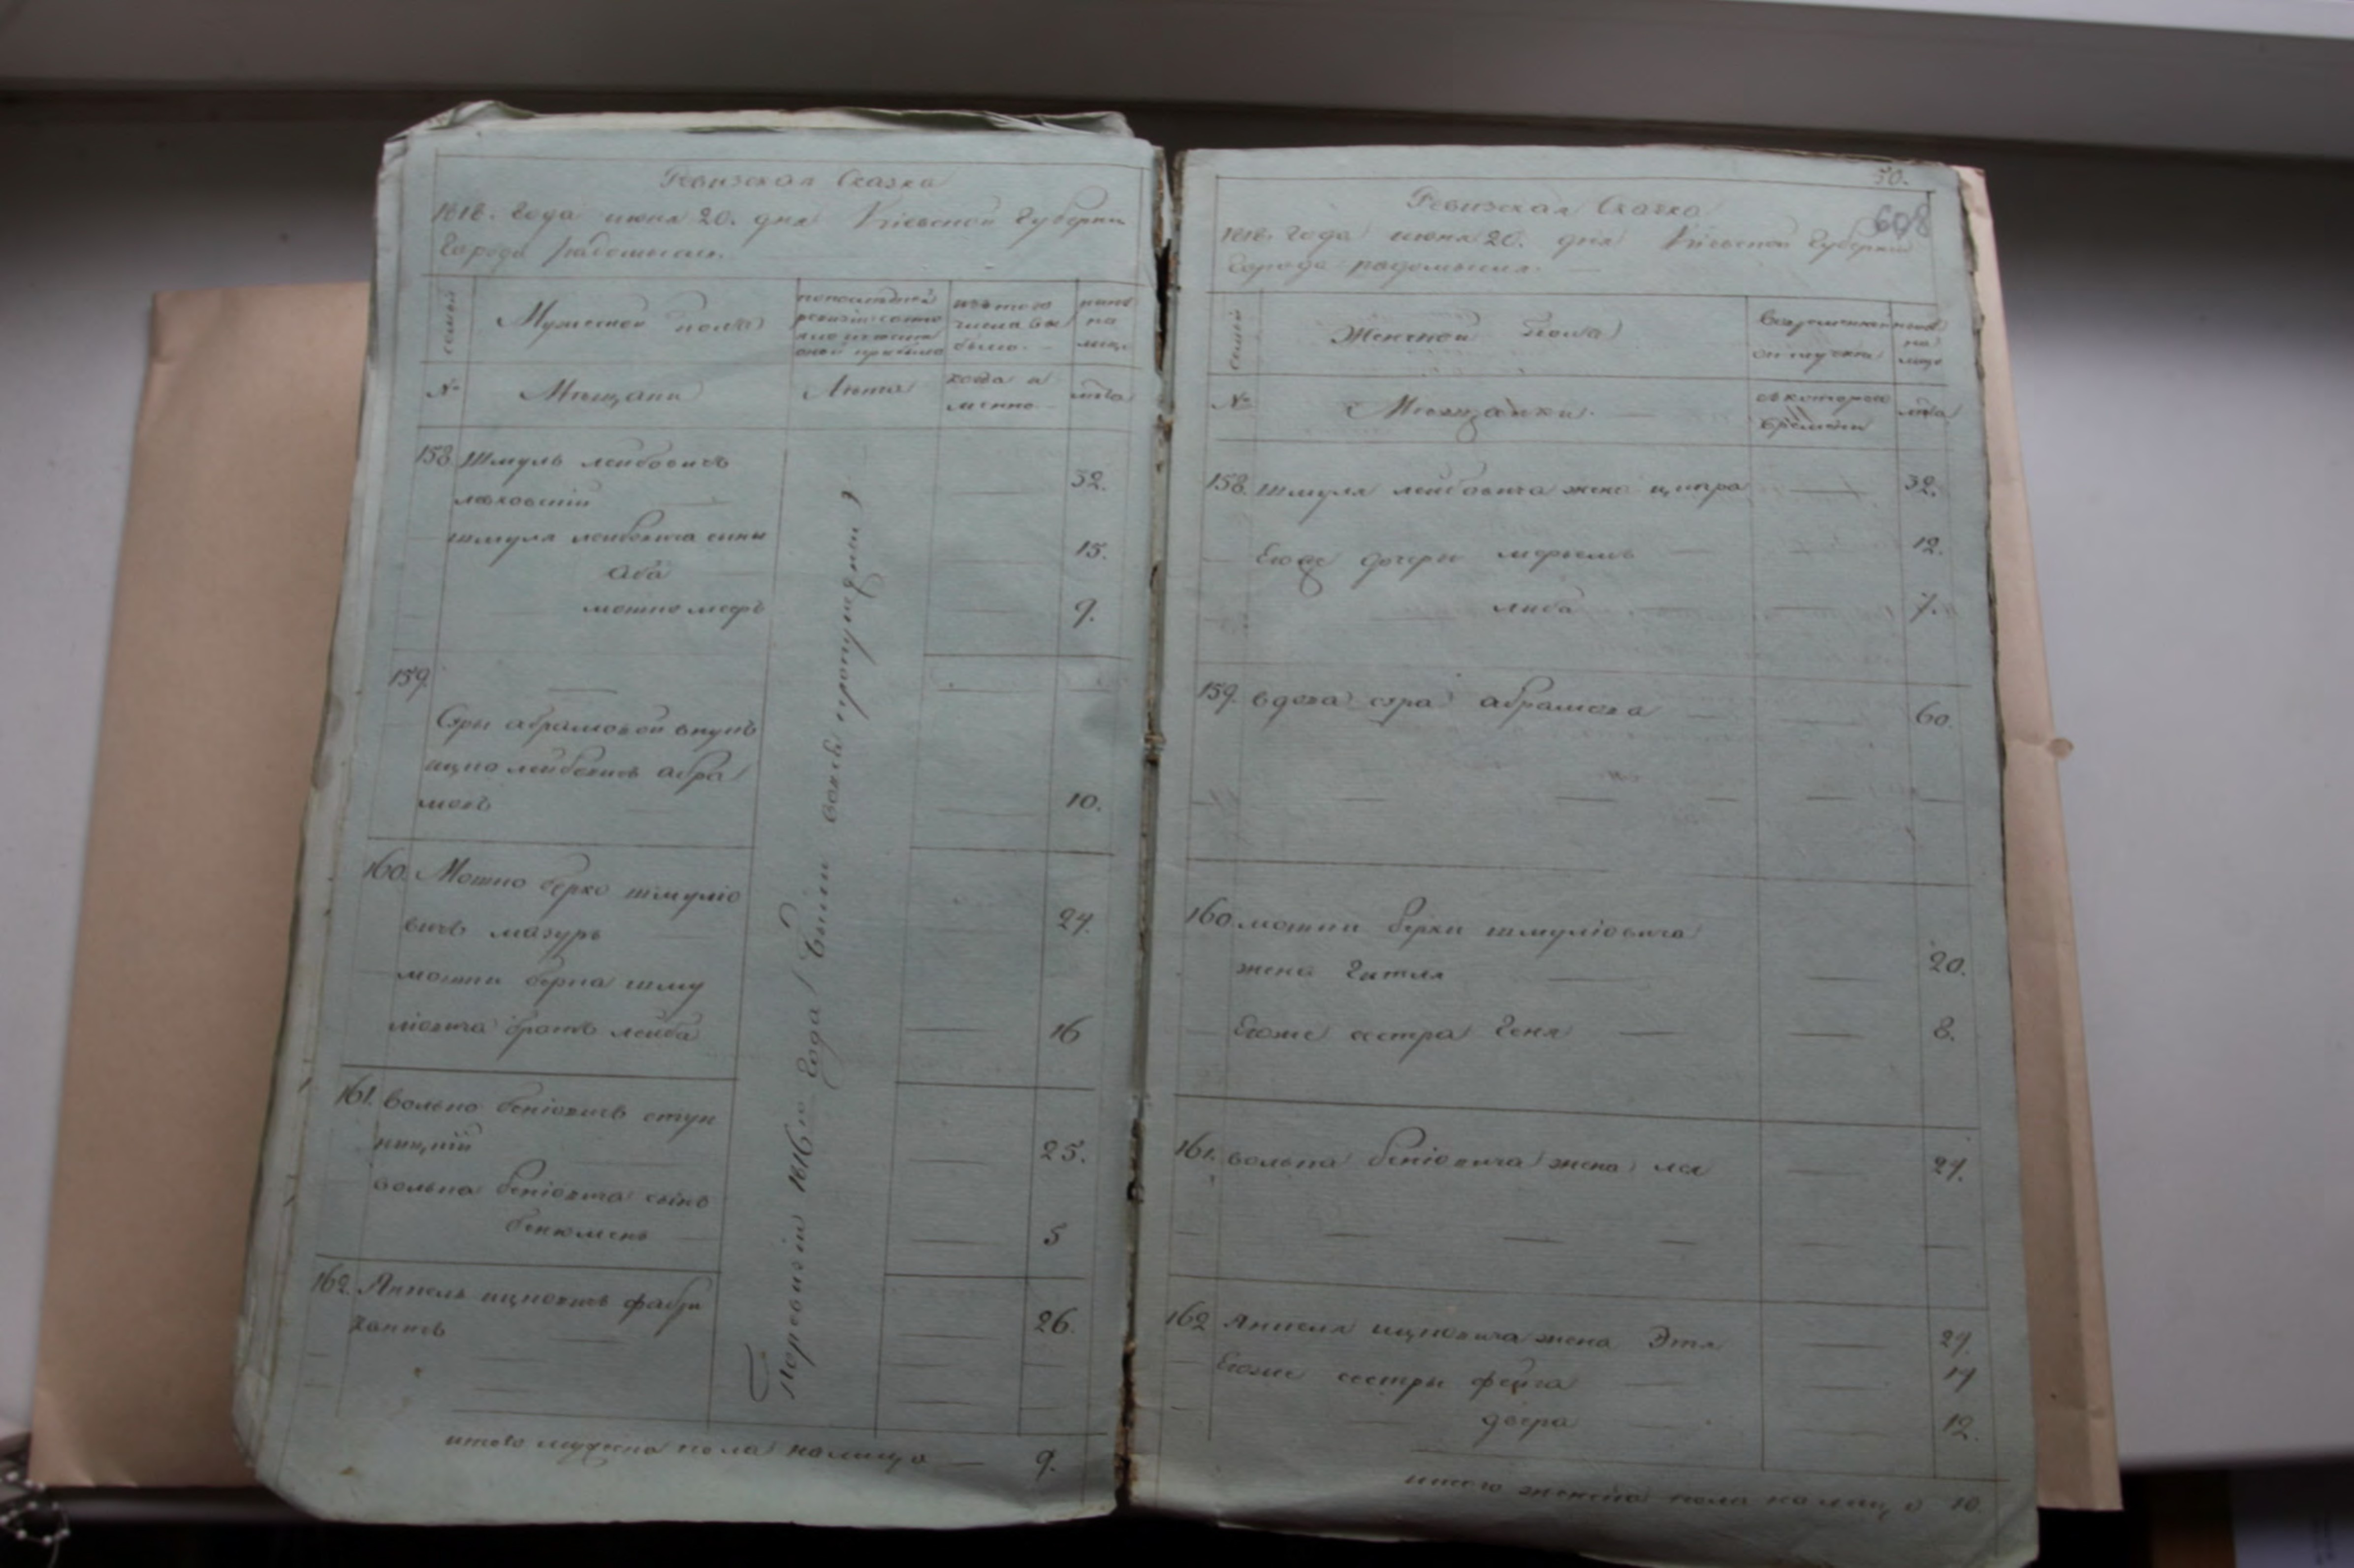 Ревизская Сказка
1818. Года июня 20. дня Кіевской Губернии
Города радомысля.
семьи
Мужеской пола
по последней
ревизіи состо
яло и после
оной прибыло
изъ того
числа вы
было.
ныне
на
лицо
№
Мещани
Лѣта
когда и
менно
лѣта
158. Шмуль лейбовичъ
ляховскій 32.
шмуля лейбовича сыны
аба 15.
мошко мееръ 9.
159.
Сэры абрамовой внукъ
ицко лейбовичъ абра
мовъ 10.
160. Мошко берко шмуліо
вичъ мазуръ 24.
мошки берка шму
ліовича братъ лейба 16
161. Волько беніовичъ ступ
ницкій 25.
волька беніовича сынъ
бенюменъ 5
162. Аншель ицковичъ фабри
кантъ 26.
По ревизіи 1816го Года Были вовся пропущены
итого мужска пола налицо 9.
50.
608
Ревизская Сказка
1818. Года июня 20. дня Кіевской Губернии
Города радомысля.
семьи
Женской пола
во временной
отлучки
ныне
на
лицо
№
Мещанки.
съ котораго
времени
лѣта
158. шмуля лейбовича жена ципра 32.
Егоже дочери мериемъ 12.
либа 7.
159. вдова сэра абрамова 60.
160. мошки берки шмуліовича
жена Гитля 20.
Егоже сестра Геня 8.
161. волька беніовича жена лея 24.
162 Аншеля ицковича жена Этя 24.
Егоже сестры фейга 14
двера 12.
итого женска пола налицо 10